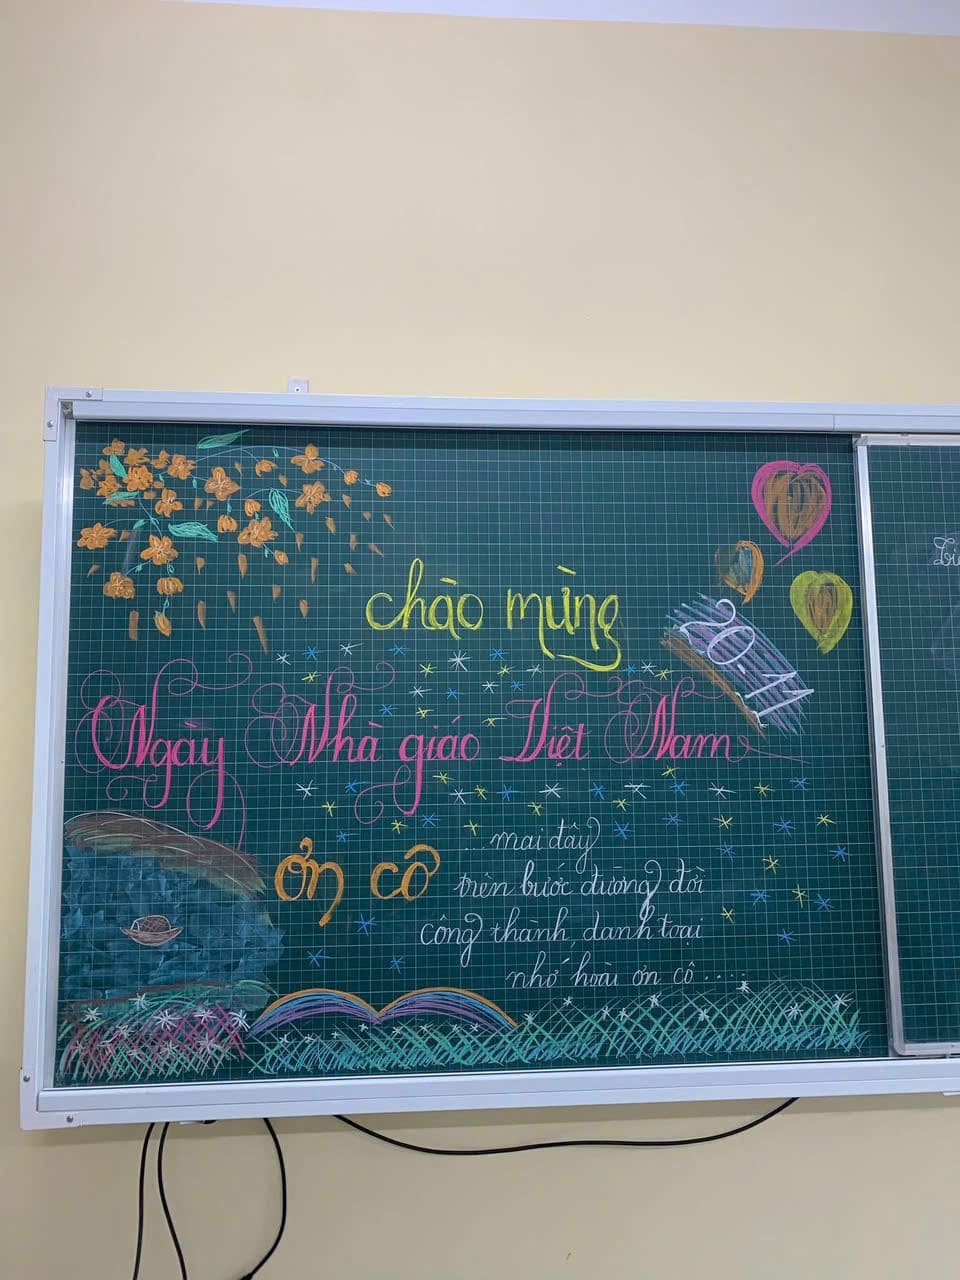 chào mừng
20-11
Ngày Nhà giáo Việt Nam
Ơn cô
... mai đây
trên bước đường đời
công thành, danh toại
nhớ hoài ơn cô.....